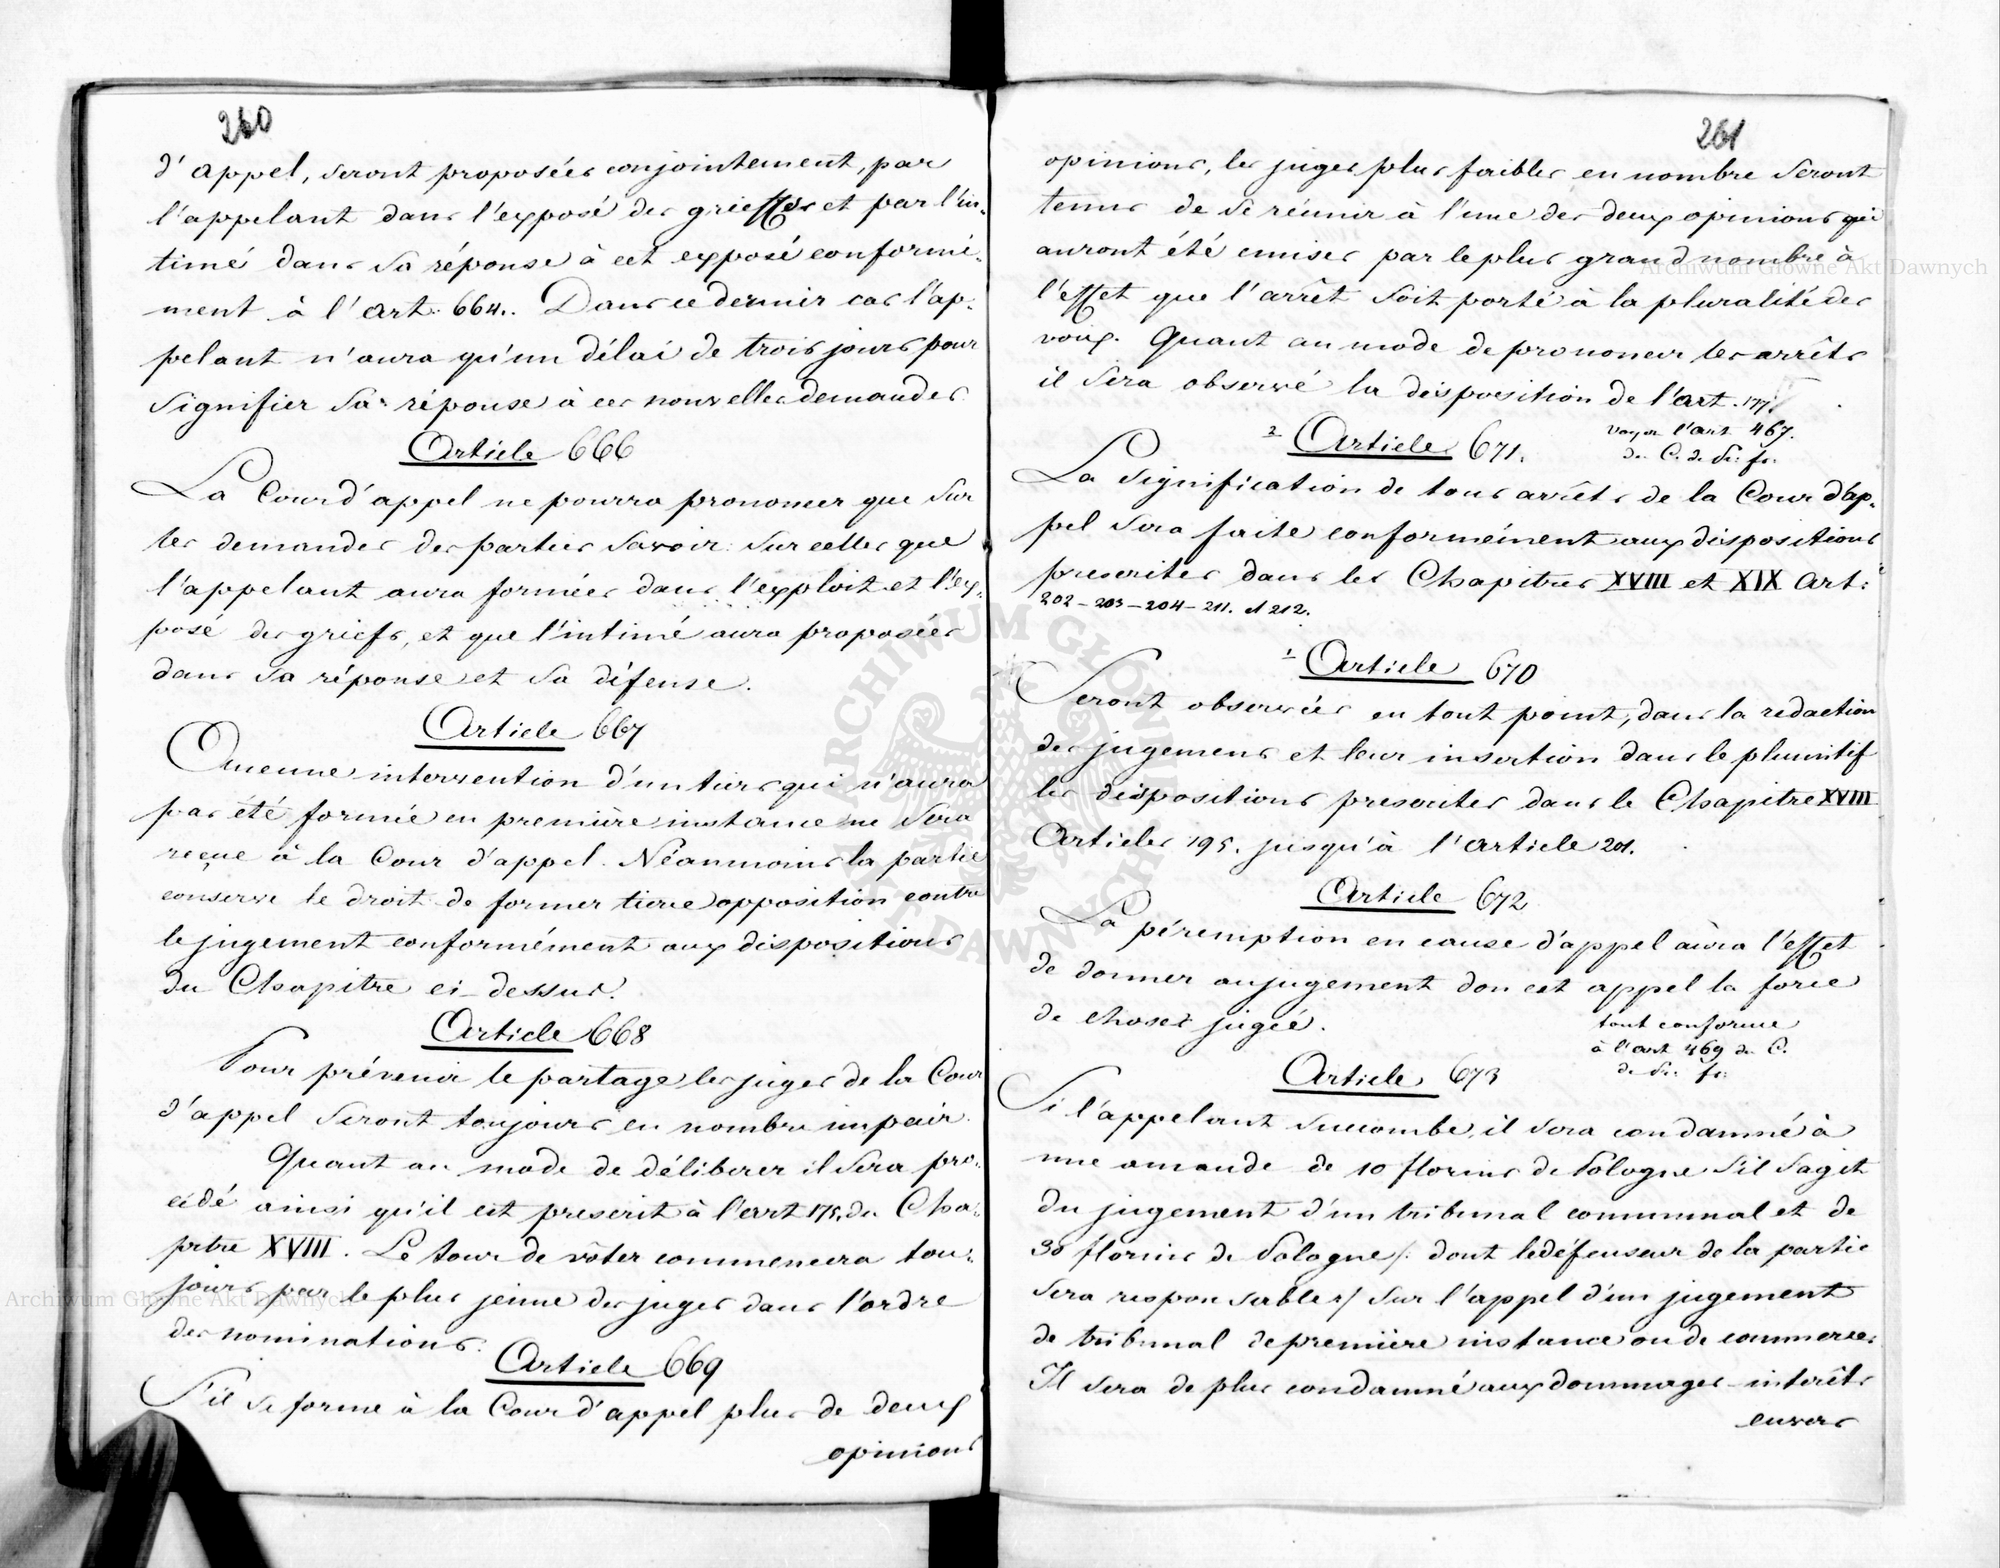 260
d'appel, seront proposées conjointement, par
l'appelant dans l'exposé des griefs et par l'in-
timé dans sa réponse à cet exposé conformé-
ment à l'art. 664. Dans ce dernier cas l'ap-
pelant n'aura qu'un délai de trois jours pour
signifier sa réponse à ces nouvelles demandes
Article 666
La Cour d'appel ne pourra prononcer que sur
les demandes des parties savoir: sur celles que
l'appelant aura formées dans l'exploit et l'ex-
posé des griefs, et que l'intimé aura proposées
dans sa réponse et sa défense.
Article 667
Aucune intervention d'un tiers qui n'aura
pas été formée en première instance ne sera
reçue à la Cour d'appel. Néanmoins la partie
conserve le droit de former tierce opposition contre
le jugement conformément aux dispositions
du Chapitre ci-dessus.
Article 668
Pour prévenir le partage les juges de la Cour
d'appel seront toujours en nombre impair.
Quant au mode de déliberer il sera pro-
cédé ainsi qu'il est prescrit à l'art 175. du Cha-
pitre XVIII. Le tour de vôter commencera tou-
jours par le plus jeune des juges dans l'ordre
des nominations.
Article 669
S'il se forme à la Cour d'appel plus de deux
opinions
261
opinions, les juges plus faibles en nombre seront
tenus de se réunir à l'une des deux opinions qui
auront été emises par le plus grand nombre à
l'effet que l'arrêt soit porté à la pluralité des
voix. Quant au mode de prononcer les arrêts
il sera observé la disposition de l'art. 177.
voyez l'art 467.
du C. de Pr. fr.
2 Article 671.
La signification de tous arrêts de la Cour d'ap-
pel sera faite conformément aux dispositions
prescrites dans les Chapitres XVIII et XIX Art:
202 - 203 - 204 - 211. et 212.
1 Article 670
Seront observées en tout point, dans la redaction
des jugemens et leur insertion dans le plumitif
les dispositions prescrites dans le Chapitre XVIII
Articles 195. jusqu'à l'article 201.
Article 672
La péremption en cause d'appel aura l'effet
de donner au jugement don est appel la force
de chose jugée.
tout conforme
à l'art 469 du C.
de Pr. fr.
Article 673
Si l'appelant succombe, il sera condamné à
une amande de 10 florins de Pologne s'il s'agit
du jugement d'un tribunal communal et de
30 florins de Pologne /: dont le défenseur de la partie
sera responsable :/ sur l'appel d'un jugement
de tribunal de première instance ou de commerce.
Il sera de plus condamné aux dommages-interêts
envers
Archiwum Główne Akt Dawnych
Archiwum Główne Akt Dawnych
ARCHIWUM GŁÓWNE AKT DAWNYCH